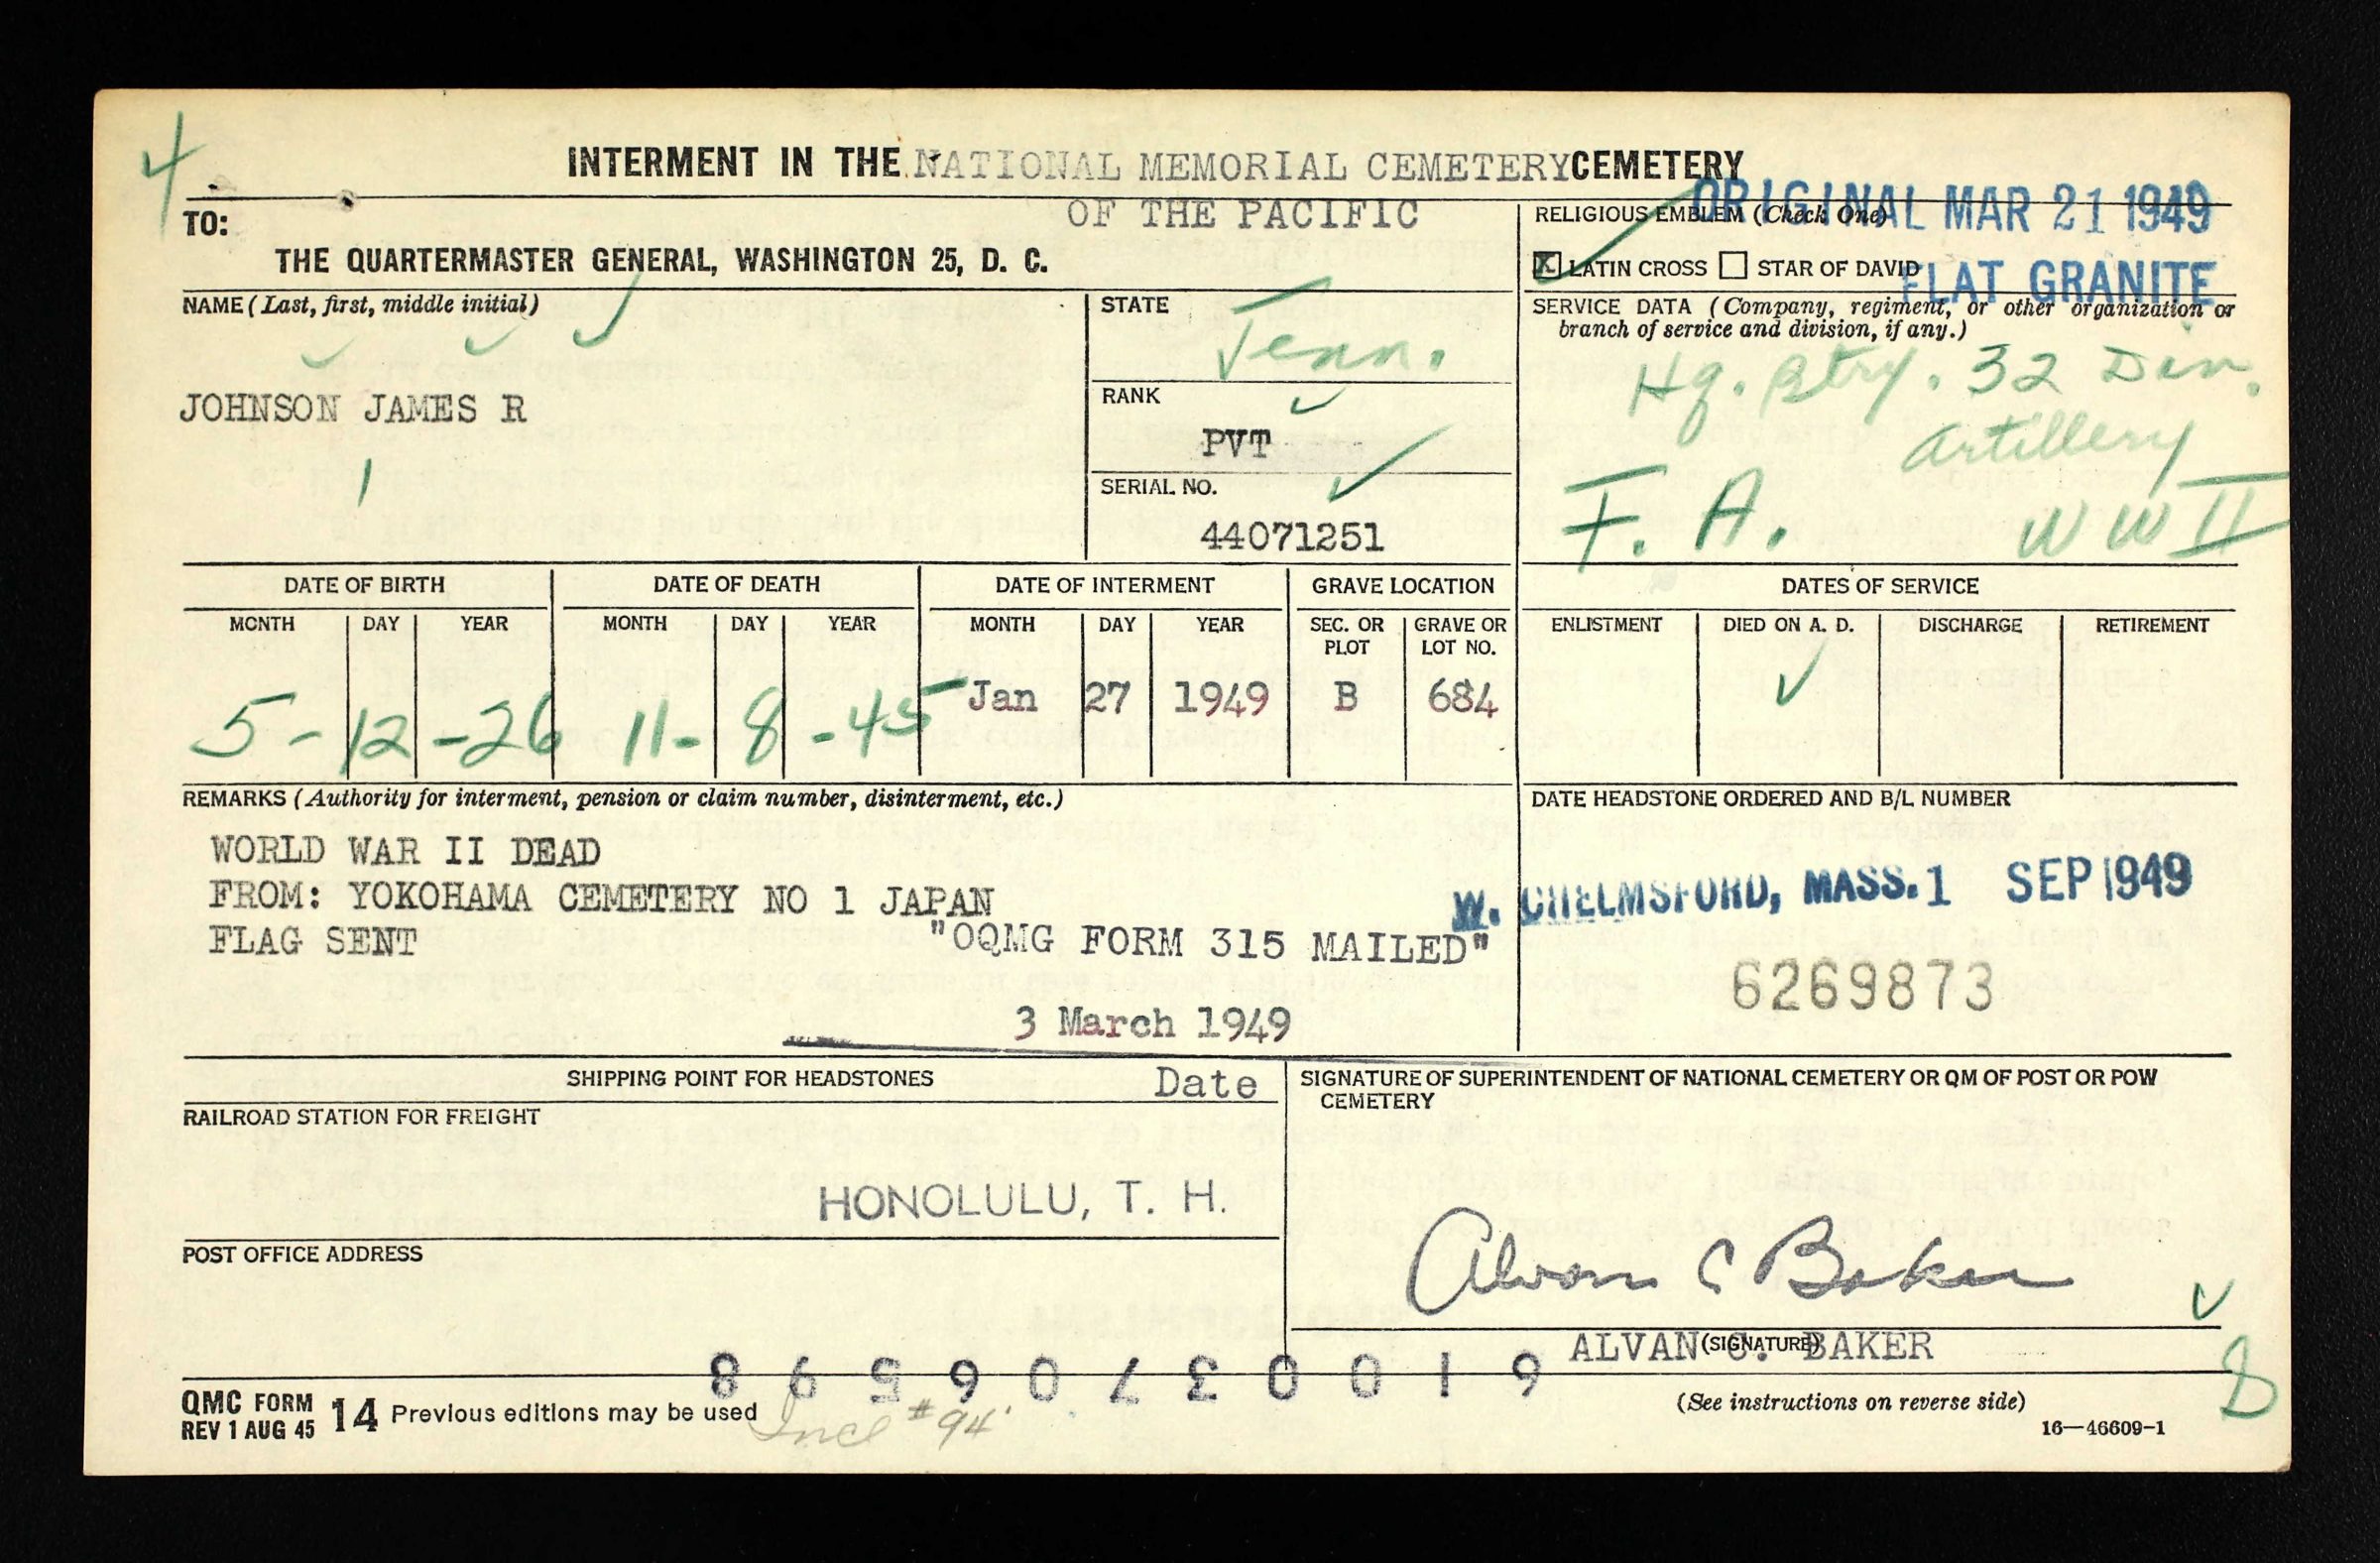 4
INTERMENT IN THE NATIONAL MEMORIAL CEMETERY CEMETERY
OF THE PACIFIC
ORIGINAL MAR 21 1949
FLAT GRANITE
TO:
THE QUARTERMASTER GENERAL, WASHINGTON 25, D. C.
RELIGIOUS EMBLEM (Check One)
X LATIN CROSS STAR OF DAVID
NAME (Last, first, middle initial)
JOHNSON JAMES R
STATE
Tenn.
RANK
PVT
SERIAL NO.
44071251
SERVICE DATA (Company, regiment, or other organization or
branch of service and division, if any.)
Hq. Btry. 32 Div.
Artillery
F. A. WW II
DATE OF BIRTH DATE OF DEATH DATE OF INTERMENT GRAVE LOCATION DATES OF SERVICE
MONTH DAY YEAR MONTH DAY YEAR MONTH DAY YEAR SEC. OR PLOT GRAVE OR LOT NO. ENLISTMENT DIED ON A. D. DISCHARGE RETIREMENT
5-12-26 11-8-45 Jan 27 1949 B 684 ✓
REMARKS (Authority for interment, pension or claim number, disinterment, etc.)
WORLD WAR II DEAD
FROM: YOKOHAMA CEMETERY NO 1 JAPAN
FLAG SENT "OQMG FORM 315 MAILED"
3 March 1949
Date
DATE HEADSTONE ORDERED AND B/L NUMBER
W. CHELMSFORD, MASS. 1 SEP 1949
6269873
SHIPPING POINT FOR HEADSTONES
RAILROAD STATION FOR FREIGHT
HONOLULU, T. H.
POST OFFICE ADDRESS
SIGNATURE OF SUPERINTENDENT OF NATIONAL CEMETERY OR QM OF POST OR POW
CEMETERY
Alvan C Baker
ALVAN C. BAKER
(SIGNATURE)
61003706598
8
QMC FORM 14 Previous editions may be used
REV 1 AUG 45
Incl #94
(See instructions on reverse side)
16—46609-1